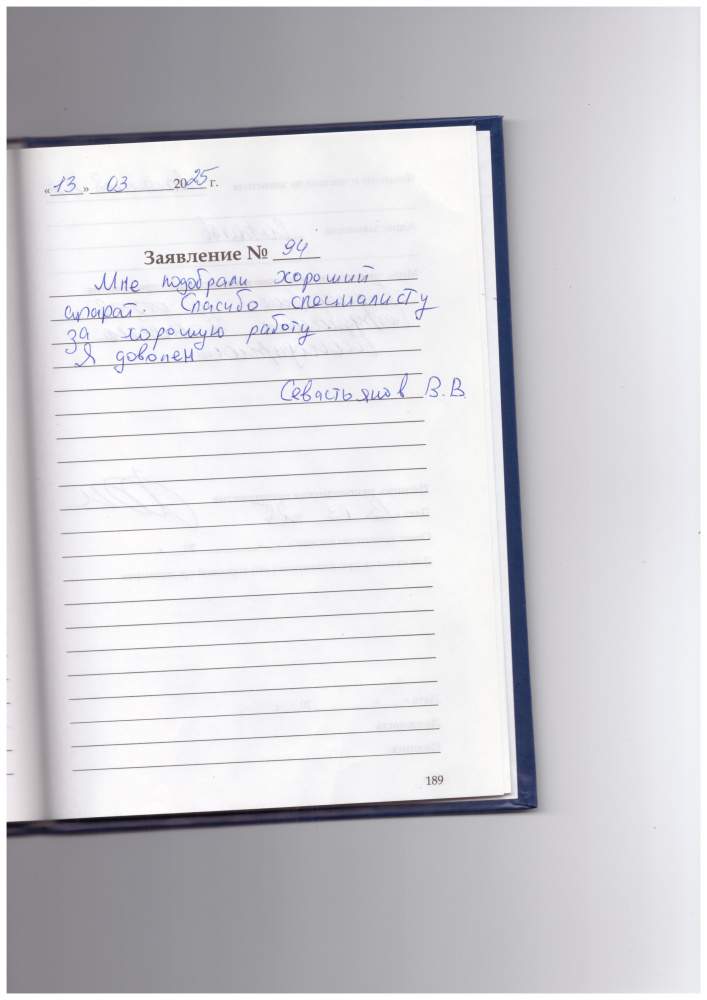 «13» 03 2025 г.
Заявление № 94
Мне подобрали хороший
апарат. Спасибо специалисту
за хорошую работу
Я доволен
Севастьянов В.В.
189